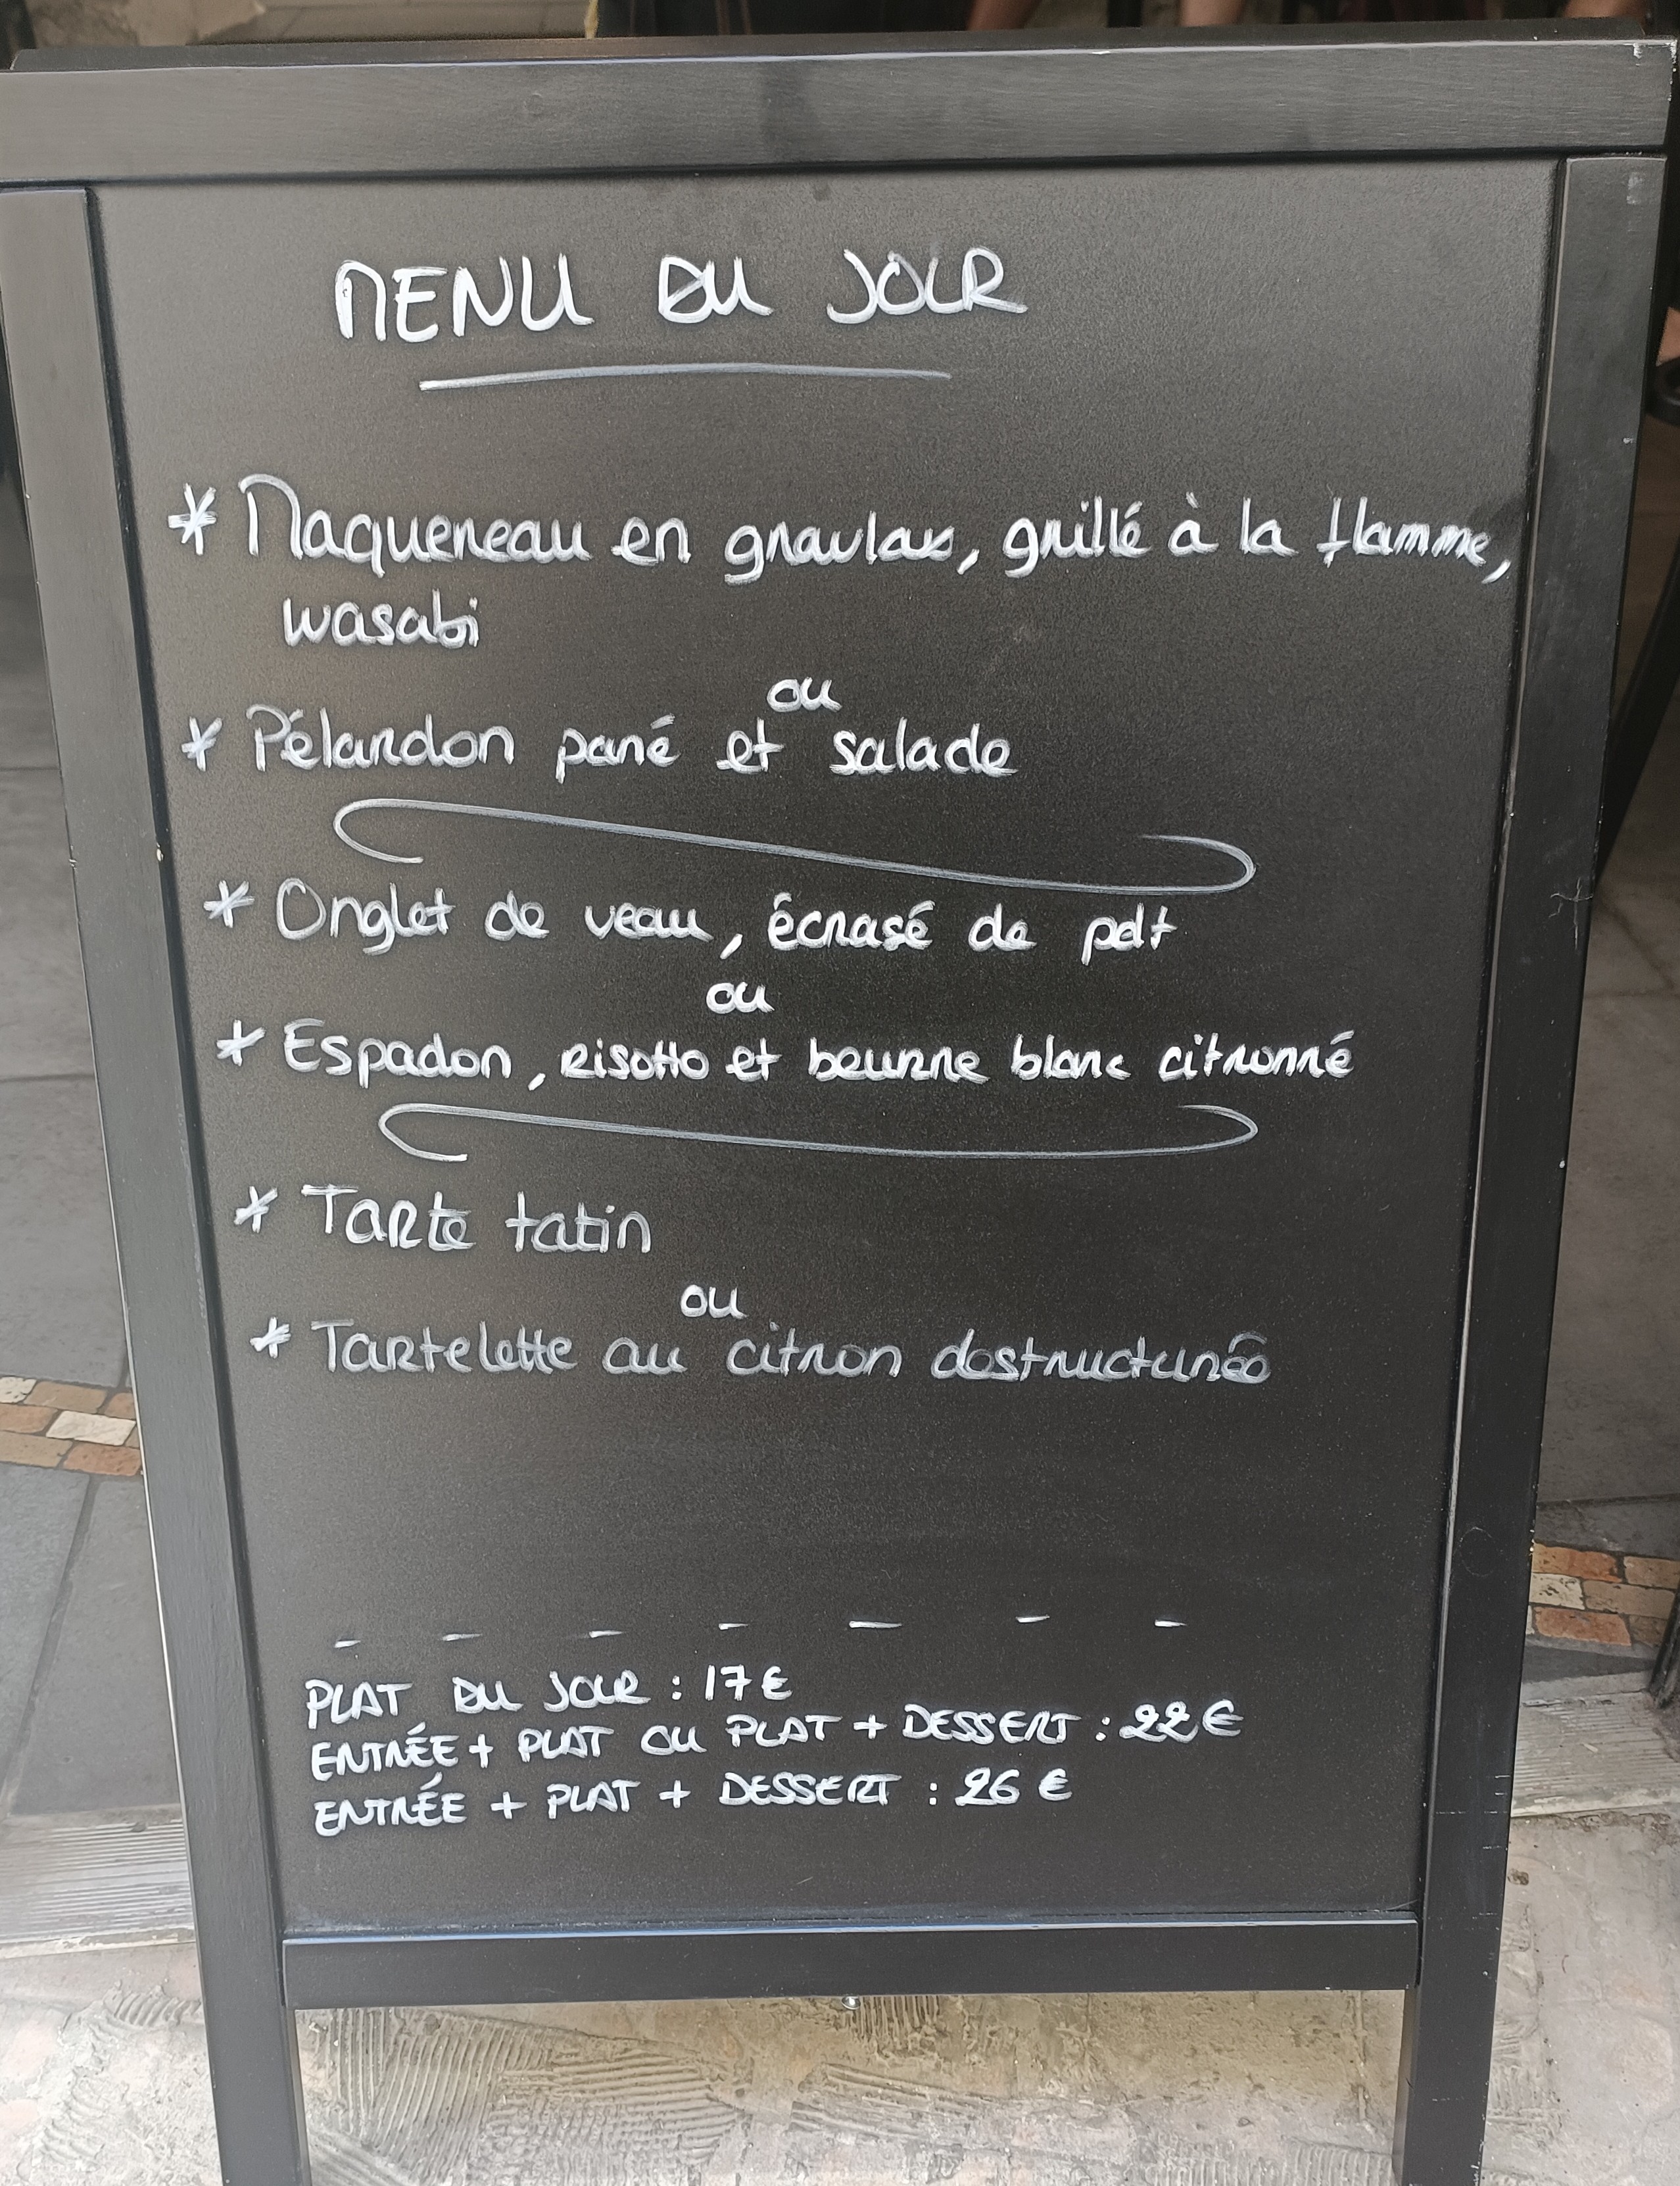 MENU DU JOUR
* Maquereau en gravlax, grillé à la flamme,
wasabi
ou
* Pélardon pané et salade
* Onglet de veau, écrasé de pdt
ou
* Espadon, risotto et beurre blanc citronné
* Tarte tatin
ou
* Tartelette au citron destructurée
PLAT DU JOUR : 17€
ENTRÉE + PLAT OU PLAT + DESSERT : 22€
ENTRÉE + PLAT + DESSERT : 26 €